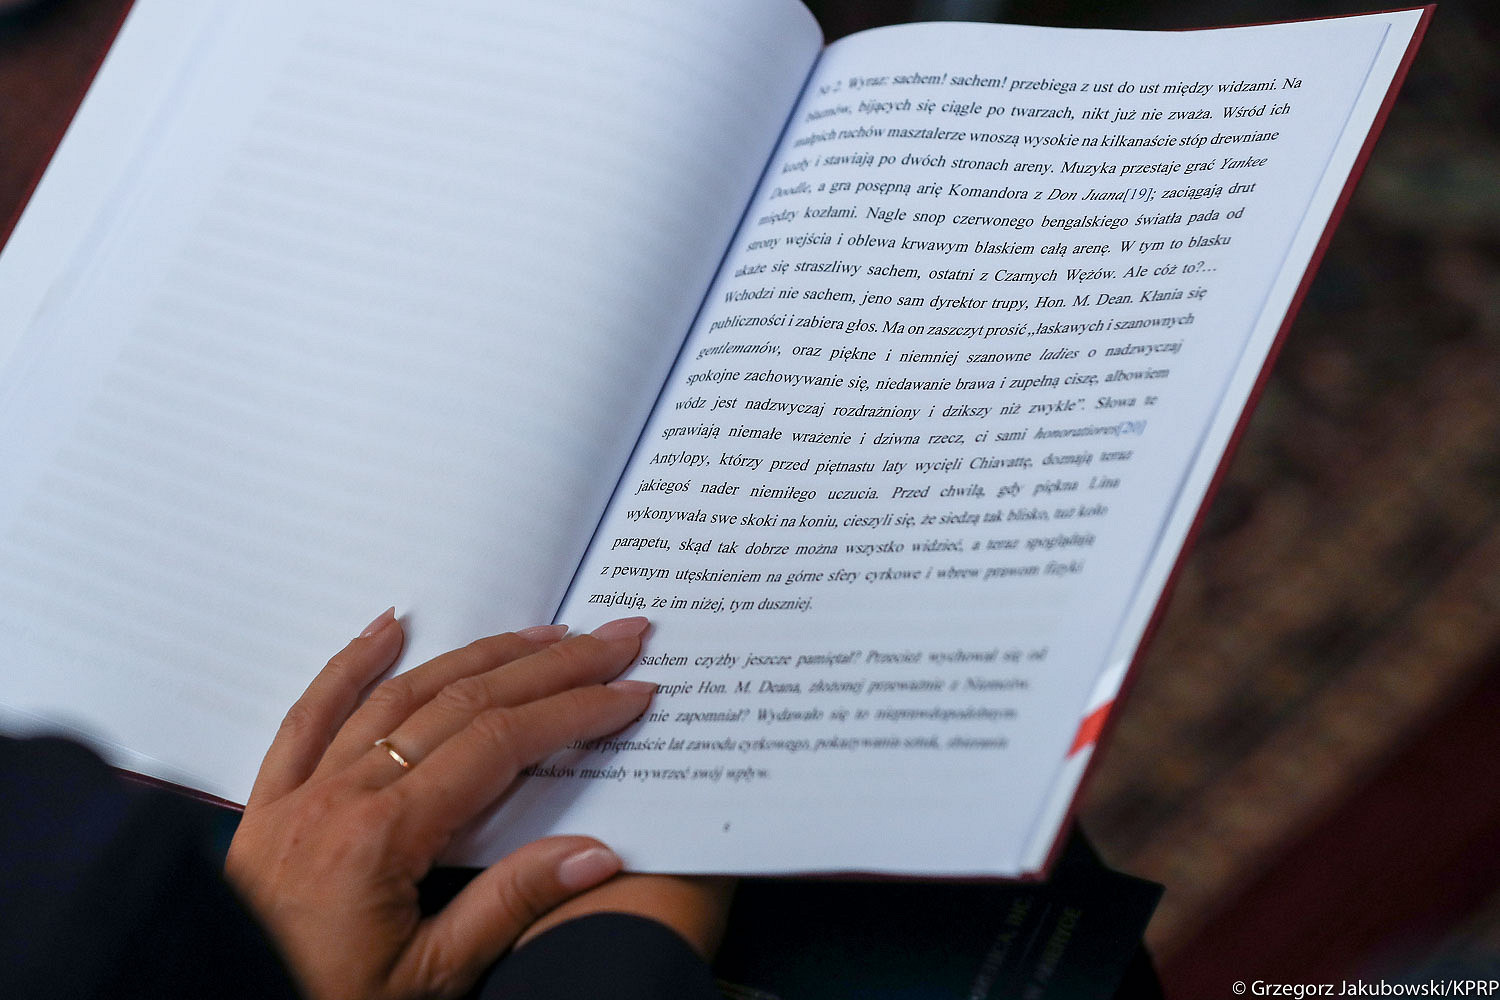 No 2. Wyraz: sachem! sachem! przebiega z ust do ust między widzami. Na
błaznów, bijących się ciągle po twarzach, nikt już nie zważa. Wśród ich
małpich ruchów masztalerze wnoszą wysokie na kilkanaście stóp drewniane
kozły i stawiają po dwóch stronach areny. Muzyka przestaje grać Yankee
Doodle, a gra posępną arię Komandora z Don Juana[19]; zaciągają drut
między kozłami. Nagle snop czerwonego bengalskiego światła pada od
strony wejścia i oblewa krwawym blaskiem całą arenę. W tym to blasku
ukaże się straszliwy sachem, ostatni z Czarnych Wężów. Ale cóż to?…
Wchodzi nie sachem, jeno sam dyrektor trupy, Hon. M. Dean. Kłania się
publiczności i zabiera głos. Ma on zaszczyt prosić „łaskawych i szanownych
gentlemanów, oraz piękne i niemniej szanowne ladies o nadzwyczaj
spokojne zachowywanie się, niedawanie brawa i zupełną ciszę, albowiem
wódz jest nadzwyczaj rozdrażniony i dzikszy niż zwykle”. Słowa te
sprawiają niemałe wrażenie i dziwna rzecz, ci sami honoratiores[20]
Antylopy, którzy przed piętnastu laty wycięli Chiavattę, doznają teraz
jakiegoś nader niemiłego uczucia. Przed chwilą, gdy piękna Lina
wykonywała swe skoki na koniu, cieszyli się, że siedzą tak blisko, tuż koło
parapetu, skąd tak dobrze można wszystko widzieć, a teraz spoglądają
z pewnym utęsknieniem na górne sfery cyrkowe i wbrew prawom fizyki
znajdują, że im niżej, tym duszniej.
sachem czyżby jeszcze pamiętał? Przecież wychował się od
trupie Hon. M. Deana, złożonej przeważnie z Niemców.
nie zapomniał? Wydawało się to nieprawdopodobnym.
i piętnaście lat zawodu cyrkowego, pokazywania sztuk, zbierania
oklasków musiały wywrzeć swój wpływ.
© Grzegorz Jakubowski/KPRP